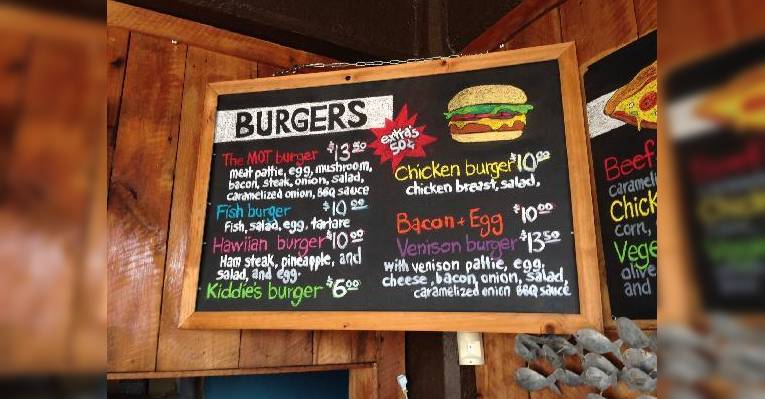 BURGERS
extra's
50¢
The MOT burger $13 50
meat pattie, egg, mushroom,
bacon, steak, onion, salad,
caramelized onion, BBQ sauce
Fish burger $10 00
Fish, salad, egg, tartare
Hawiian burger $10 00
Ham steak, pineapple, and
salad, and egg.
Kiddie's burger $6 00
Chicken burger $10 00
chicken breast, salad,
Bacon + Egg $10 00
Venison burger $13 50
with venison pattie, egg,
cheese, bacon, onion, salad,
caramelized onion BBQ sauce
Beef
caramel
Chick
corn,
Vege
olive
and